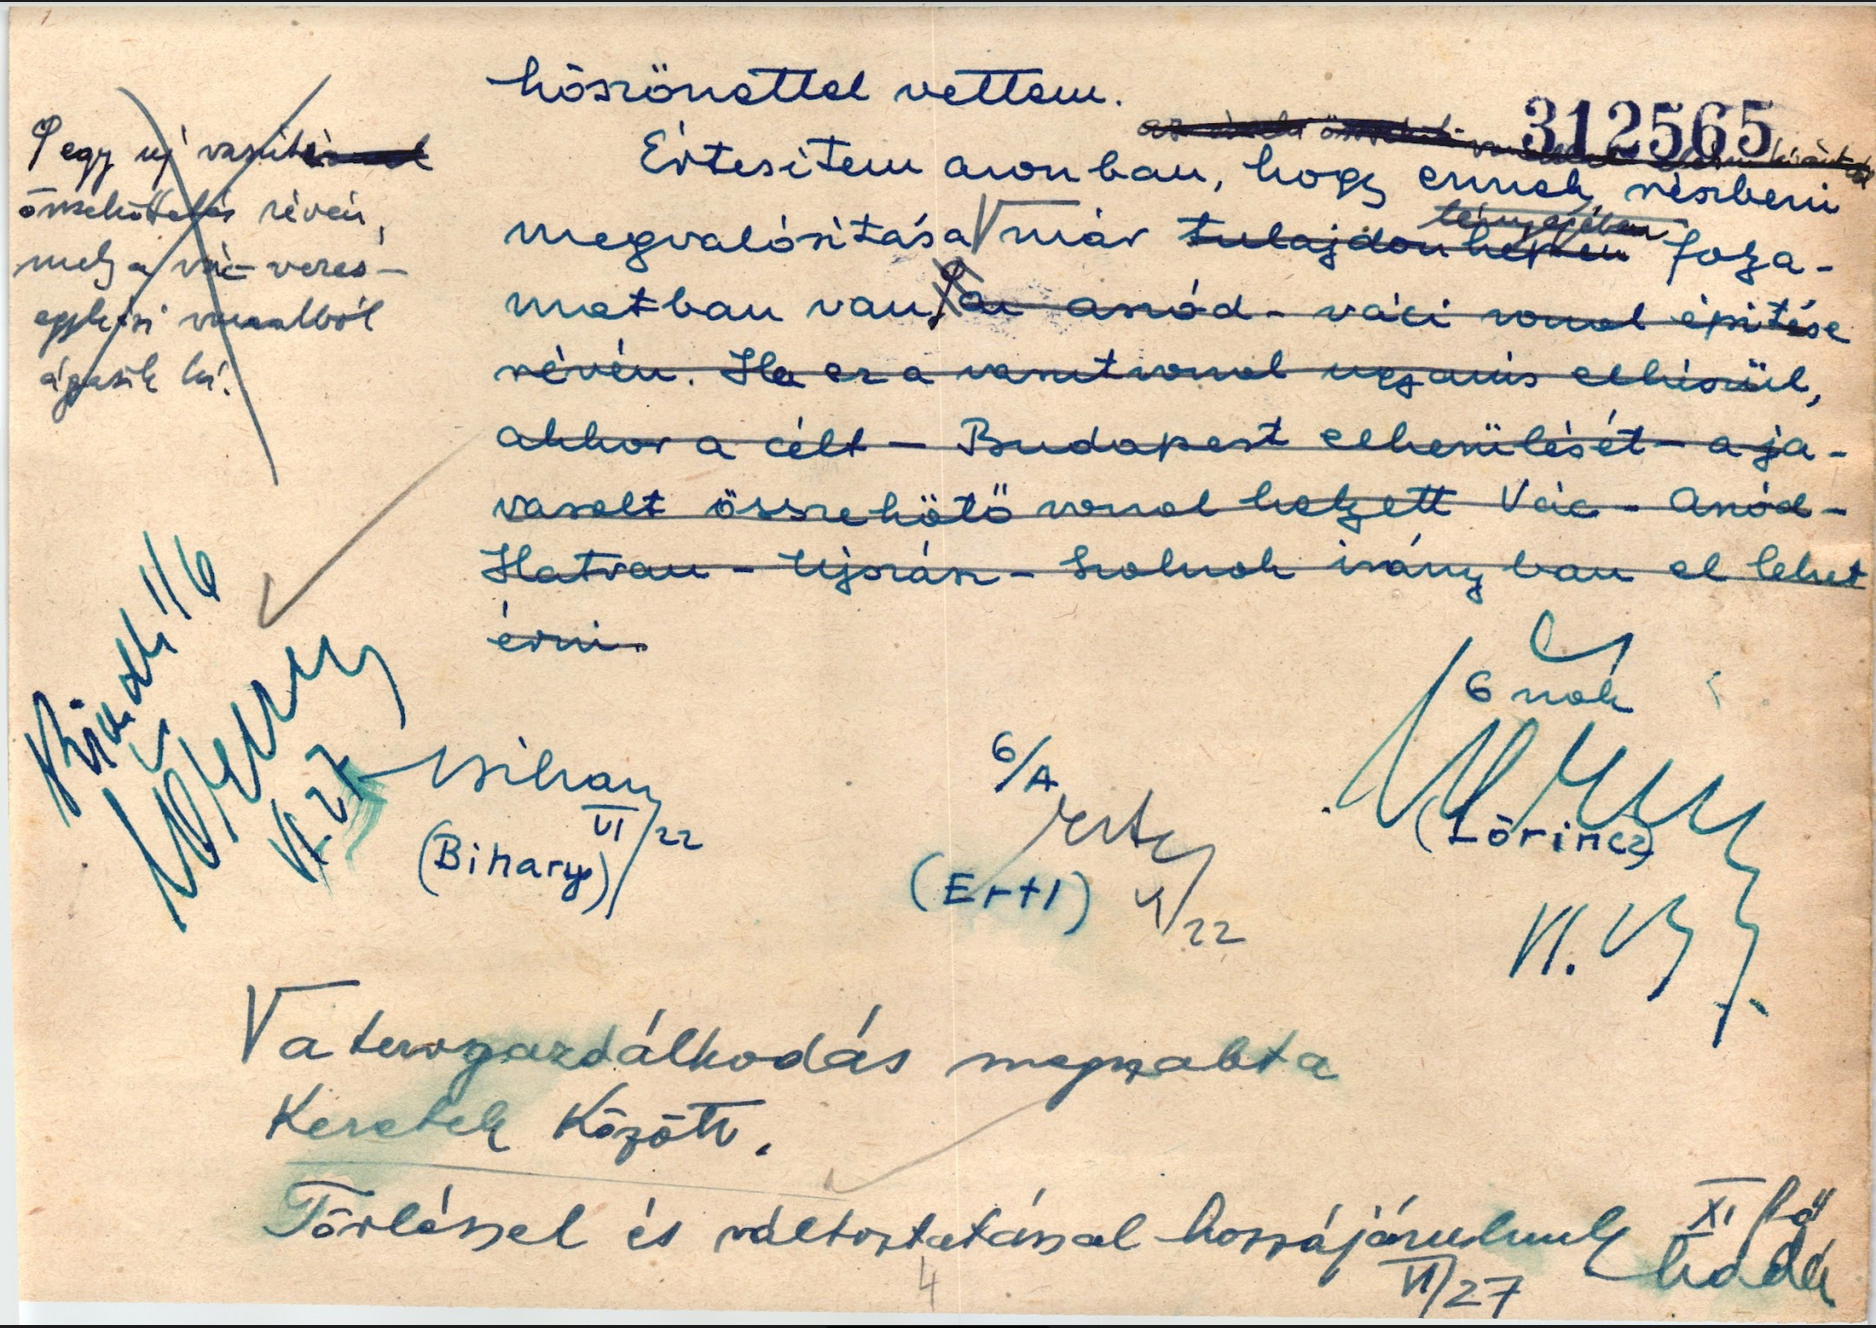 312565
köszönettel vettem.
Értesitem azonban, hogy ennek részbeni
megvalósitása már tulajdonképen tényezőben folya-
matban van, az aszód - váci vonal épitése
révén. Ha ez a vasutvonal ugyanis elkészül,
akkor a célt - Budapest elkerülését - a ja-
vasolt összekötő vonal helyett Vác - Aszód -
Hatvan - Ujszász - Szolnok irányban el lehet
érni.
egy uj vasuti
összeköttetés révén,
mely a vác - veres-
egyházi vonalból
ágazik ki.
6 nak
VI. 27
Bihary
VI/22
(Bihary)
6/A
Ertl
(Ertl) VI/22
(Lőrincz)
VI.
V a tervgazdálkodás megszabta
keretek között.
Törléssel és változtatással hozzájárulunk XI fő
VI/27
4